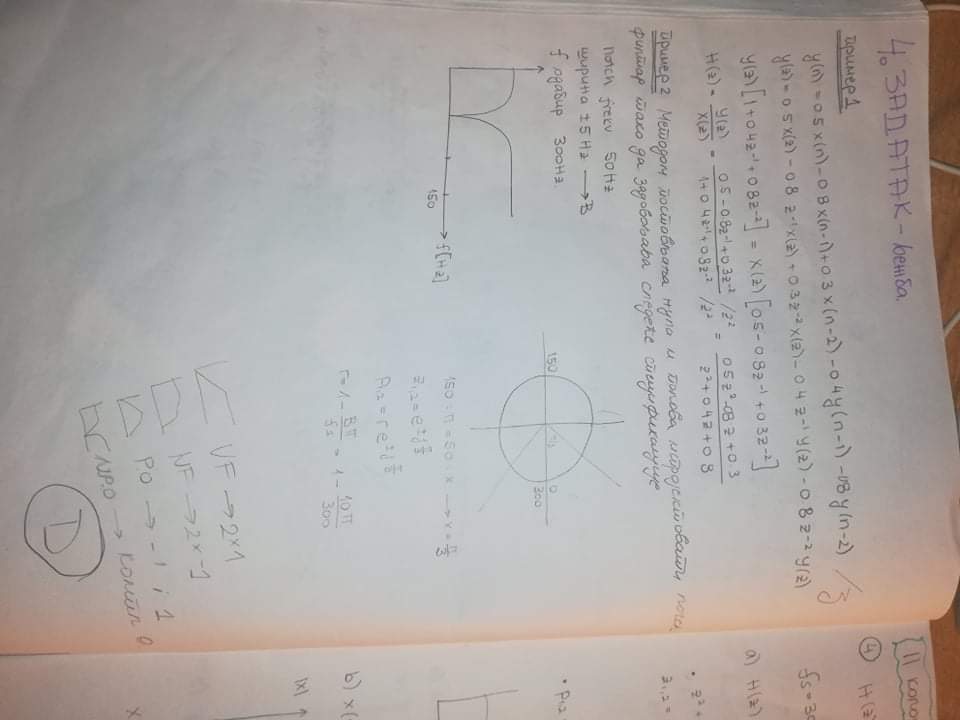 4. ЗАДАТАК - вежба.
пример 1
y(n) = 0.5 x(n) - 0.8 x(n-1) + 0.3 x(n-2) - 0.4 y(n-1) - 0.8 y(n-2) /Z
y(z) = 0.5 x(z) - 0.8 z⁻¹ x(z) + 0.3 z⁻² x(z) - 0.4 z⁻¹ y(z) - 0.8 z⁻² y(z)
y(z) [1 + 0.4z⁻¹ + 0.8z⁻²] = x(z) [0.5 - 0.8z⁻¹ + 0.3z⁻²]
H(z) = y(z)/x(z) = (0.5 - 0.8z⁻¹ + 0.3z⁻²)/(1 + 0.4z⁻¹ + 0.8z⁻²) /z² /z² = (0.5z² - 0.8z + 0.3)/(z² + 0.4z + 0.8)
пример 2 Методом постављања нула и полова, пројектовати
филтар тако да задовољава следеће спецификације
50Hz
ширина ±5Hz → B
f одабир 300Hz.
150
f[Hz]
150
0
300
150 : π = 50 : x → x = π/3
z₁,₂ = e^(±jπ/3)
p₁,₂ = r e^(±jπ/3)
r = 1 - Bπ/fs = 1 - 10π/300
VF → 2x1
NF → 2x-1
PO → -1 i 1
NPO → компл
D
II
4 H(z
fs = 30
a) H(z)
• z² +
z₁,₂ =
• p₁,₂
b) x(
|x|
x